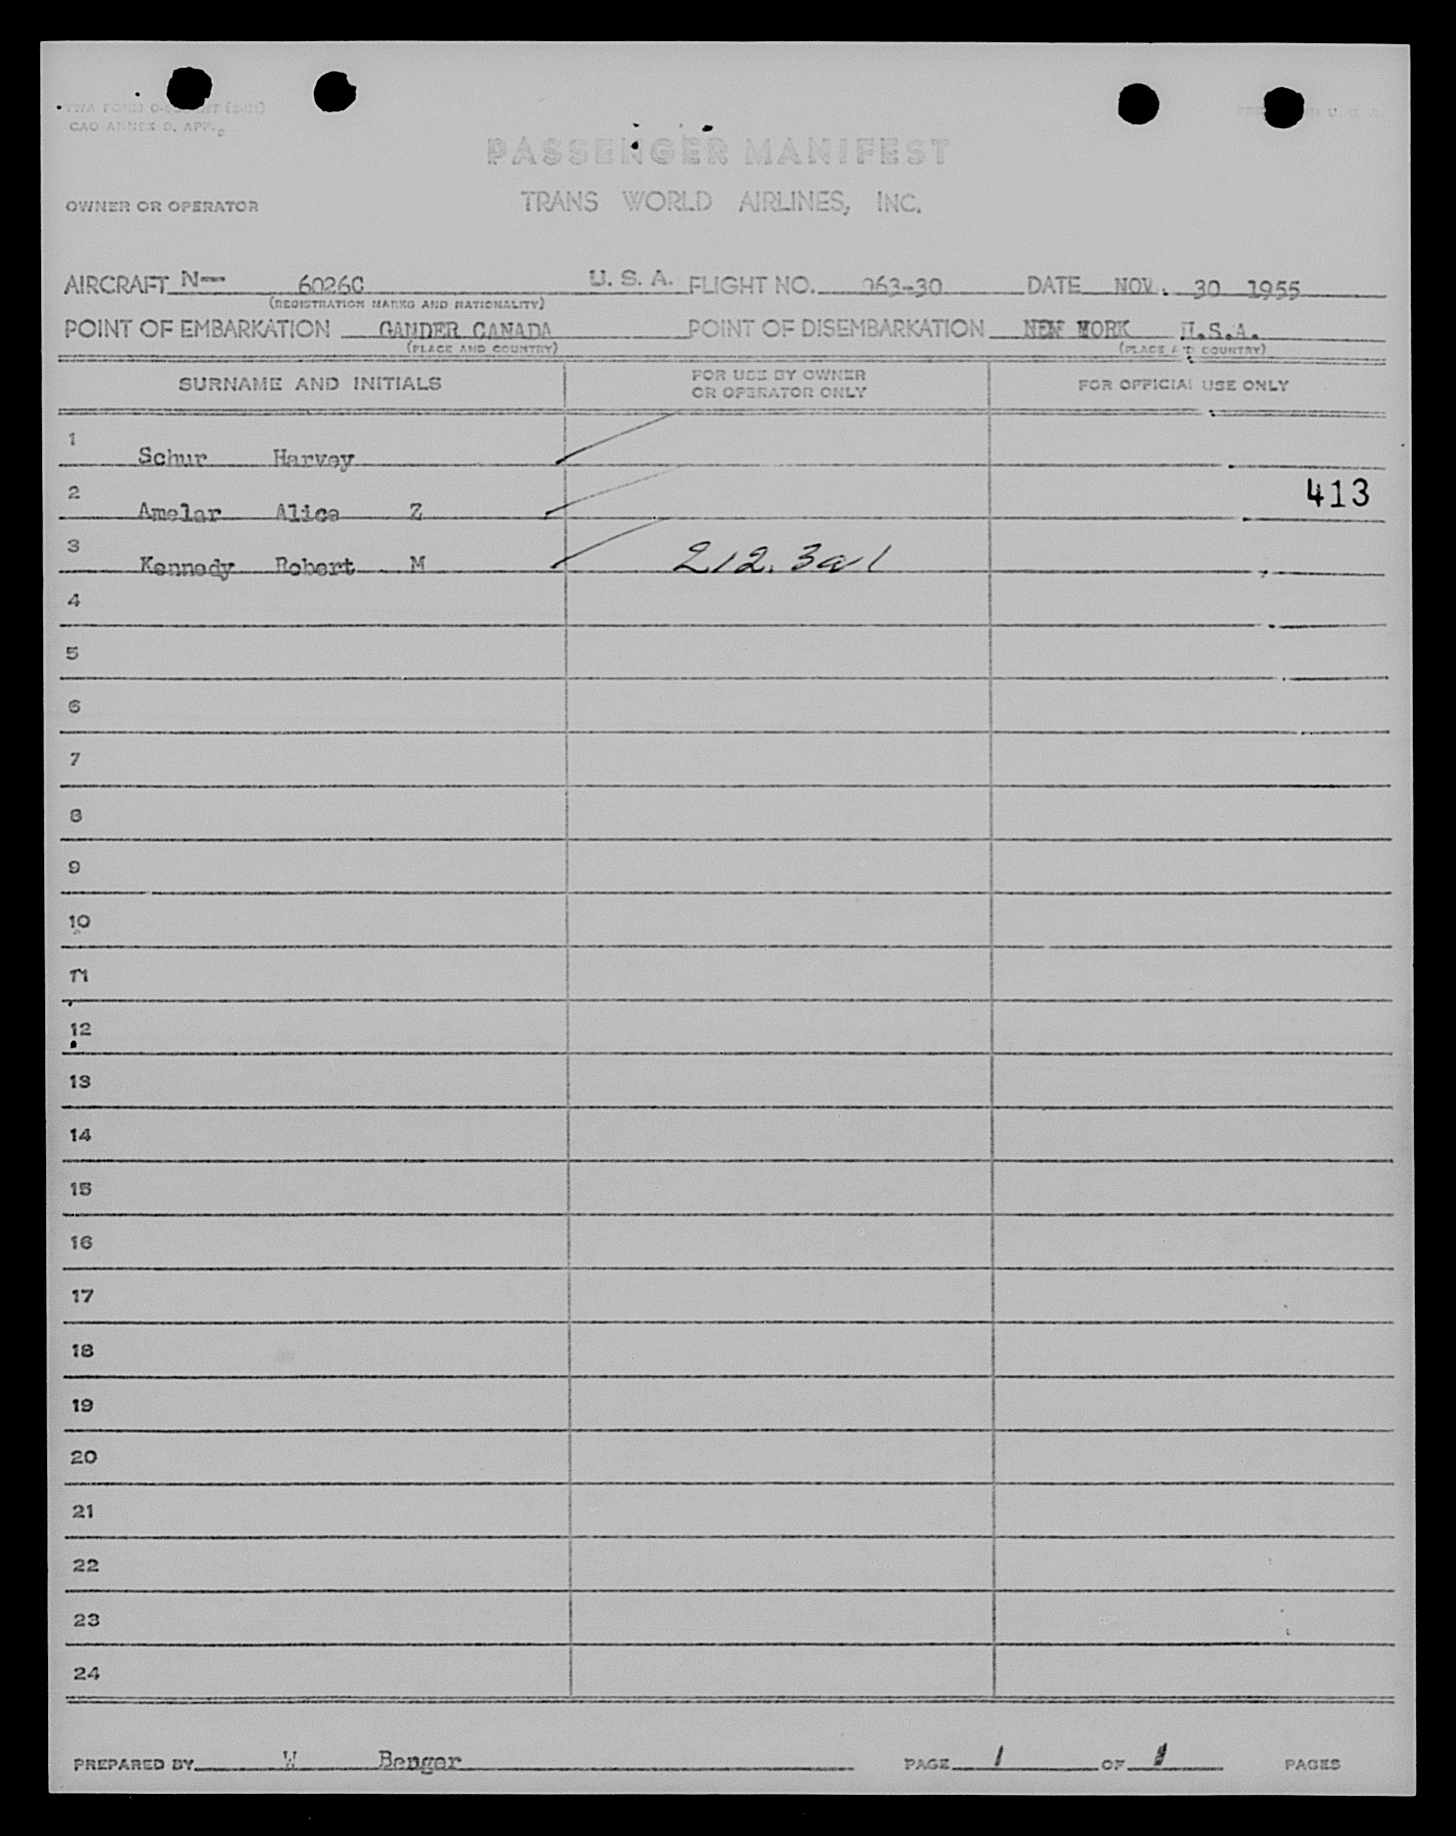 CAO ANNEX 9, APP.
PASSENGER MANIFEST
OWNER OR OPERATOR TRANS WORLD AIRLINES, INC.
AIRCRAFT N- 6026C U. S. A. FLIGHT NO. 063-30 DATE NOV. 30 1955
(REGISTRATION MARKS AND NATIONALITY)
POINT OF EMBARKATION GANDER CANADA POINT OF DISEMBARKATION NEW YORK U.S.A.
(PLACE AND COUNTRY) (PLACE AND COUNTRY)
SURNAME AND INITIALS FOR USE BY OWNER OR OPERATOR ONLY FOR OFFICIAL USE ONLY
1 Schur Harvey
2 Amelar Alice Z 413
3 Kennedy Robert M 212.3a1
4
5
6
7
8
9
10
11
12
13
14
15
16
17
18
19
20
21
22
23
24
PREPARED BY W Benger PAGE 1 OF 1 PAGES